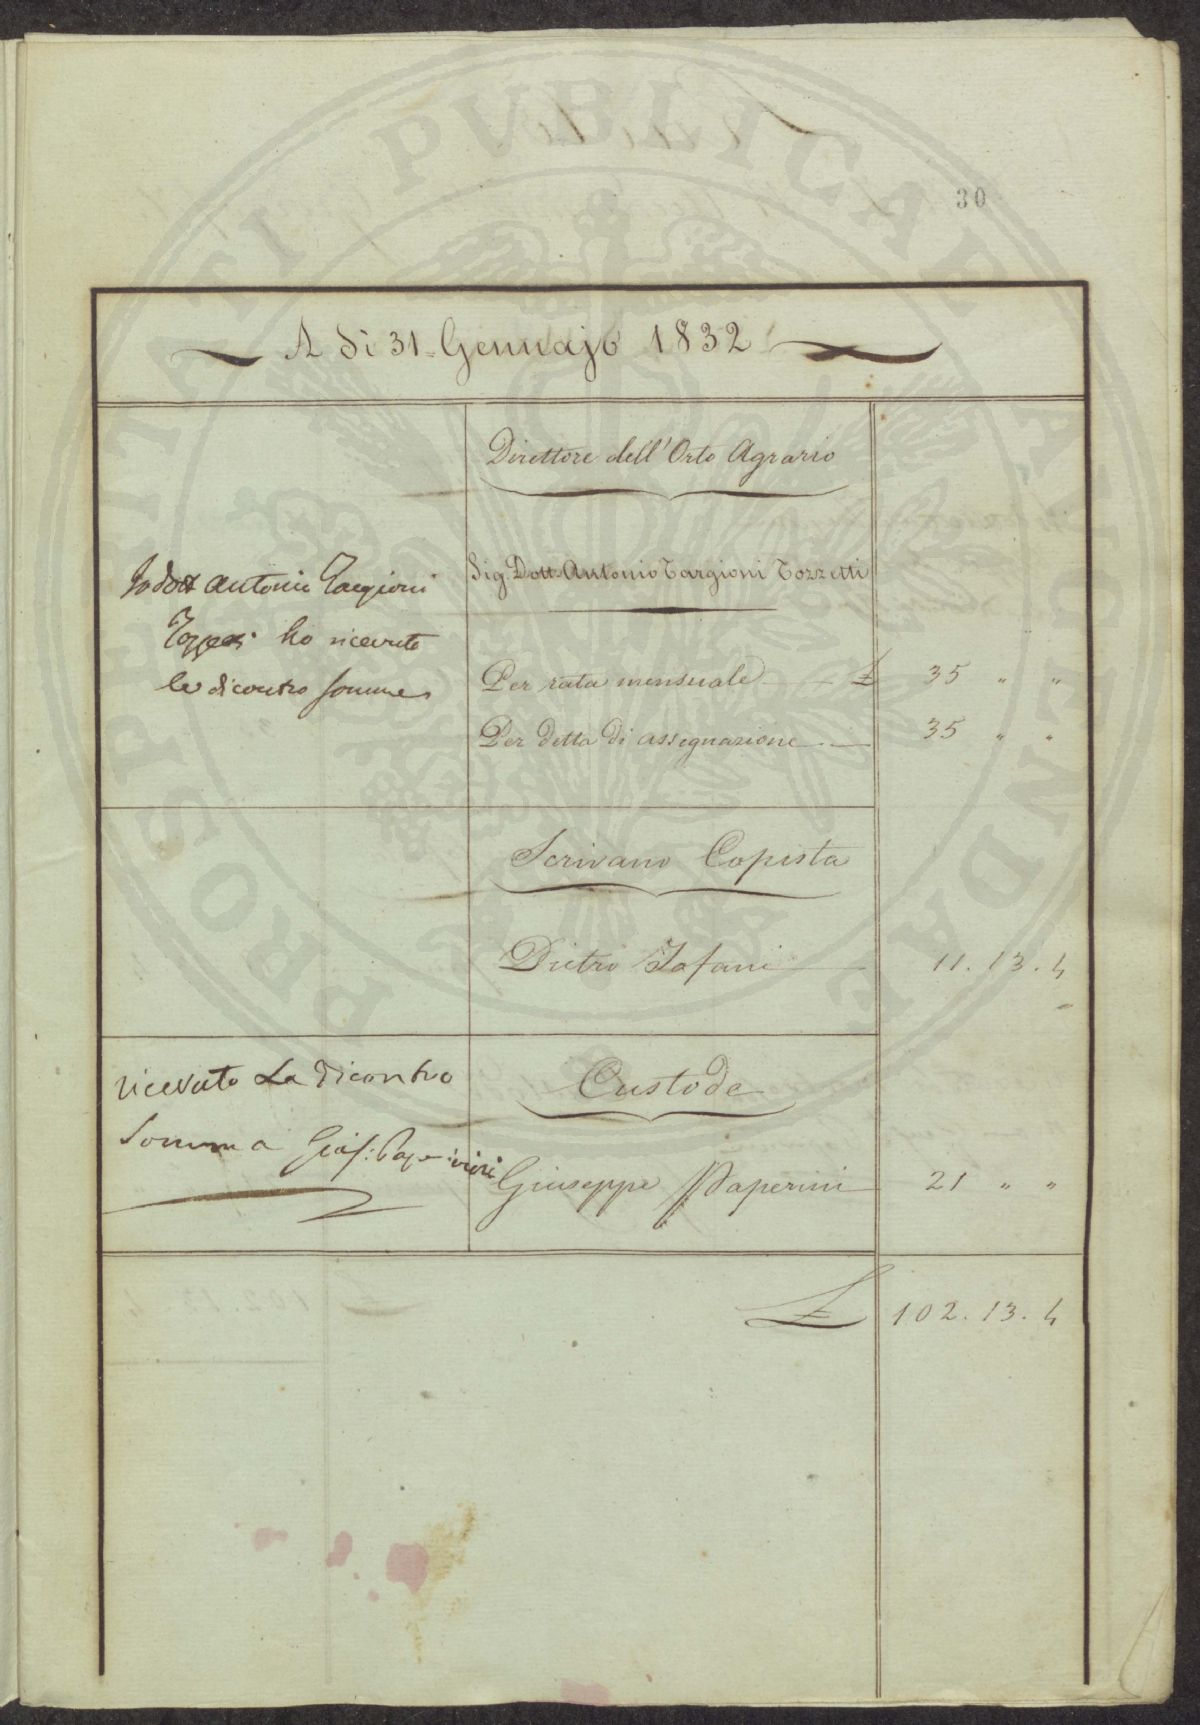 PROSPERITATI PUBLICAE AUGENDAE
30
A dì 31 Gennajo 1832
Direttore dell'Orto Agrario
Io Dott Antonio Targioni
Sig. Dott. Antonio Targioni Tozzetti
Tozzetti ho ricevuto
le dicontro somme
Per rata mensuale £ 35 " "
Per detta di assegnazione 35 " "
Scrivano Copista
Pietro Tafani 11. 13. 4
ricevuto La dicontro
Custode
Somma Gius: Paperini
Giuseppe Paperini 21 " "
£ 102. 13. 4